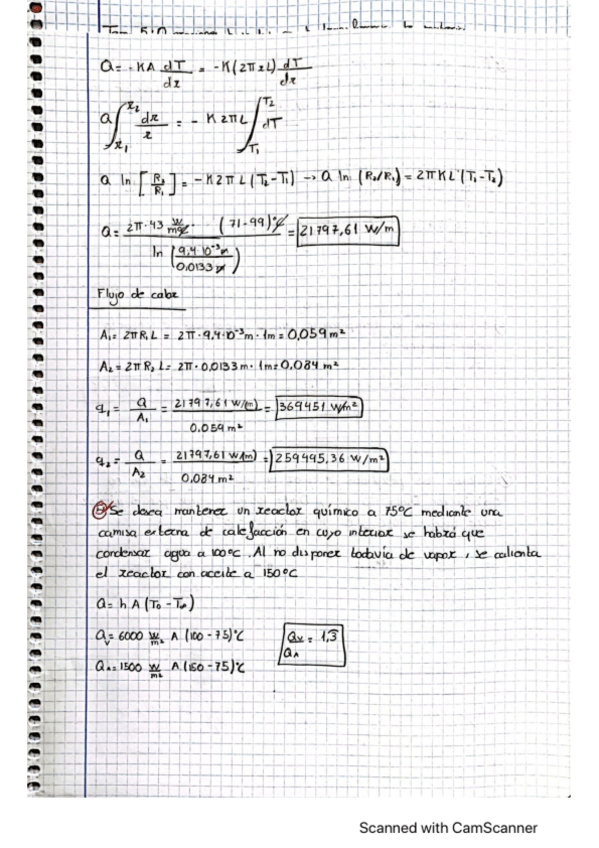 Q = -KA dT/dr = -K(2πrL) dT/dr
Q ∫r1 r2 dr/r = - K2πL ∫T1 T2 dT
Q ln [R2/R1] = -K2πL (T2-T1) → Q ln (R2/R1) = 2πKL (T1-T2)
Q = 2π·43 W/mºC · (71-99)ºC / ln (9,4·10⁻³m / 0,0133 m) = 21797,61 W/m
Flujo de calor
A1 = 2πR1L = 2π·9,4·10⁻³m·1m = 0,059 m²
A2 = 2πR2L = 2π·0,0133m·1m = 0,084 m²
q1 = Q/A1 = 21797,61 W/(m) / 0,059 m² = 369451 W/m²
q2 = Q/A2 = 21797,61 W/(m) / 0,084 m² = 259495,36 W/m²
Se desea mantener un reactor químico a 75ºC mediante una
camisa externa de calefacción en cuyo interior se habrá que
condensar agua a 100ºC. Al no disponer todavía de vapor, se calienta
el reactor con aceite a 150ºC
Q = hA(T0-T∞)
Qv = 6000 W/m² A (100-75)ºC
Qv/QA = 1,3
QA = 1500 W/m² A (150-75)ºC
Scanned with CamScanner